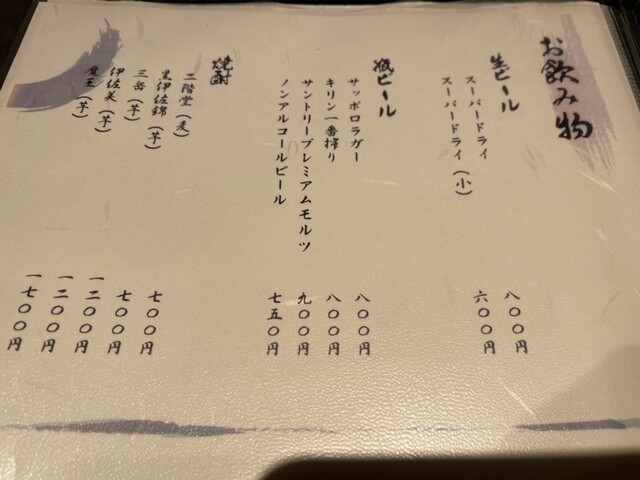 お飲み物
生ビール
スーパードライ 八〇〇円
スーパードライ（小） 六〇〇円
瓶ビール
サッポロラガー 八〇〇円
キリン一番搾り 八〇〇円
サントリープレミアムモルツ 九〇〇円
ノンアルコールビール 七五〇円
焼酎
二階堂（麦） 七〇〇円
黒伊佐錦（芋） 七〇〇円
三岳（芋） 一二〇〇円
伊佐美（芋） 一二〇〇円
魔王（芋） 一七〇〇円